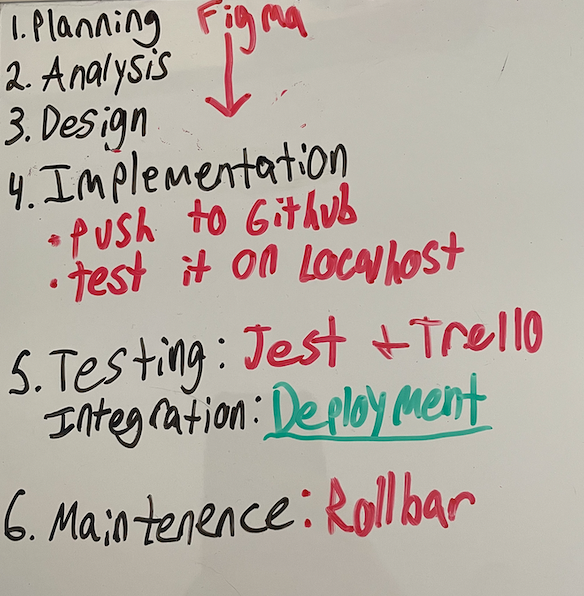 1. Planning Figma
2. Analysis
3. Design
4. Implementation
• Push to Github
• test it on Localhost
5. Testing: Jest + Trello
Integration: Deployment
6. Maintenence: Rollbar